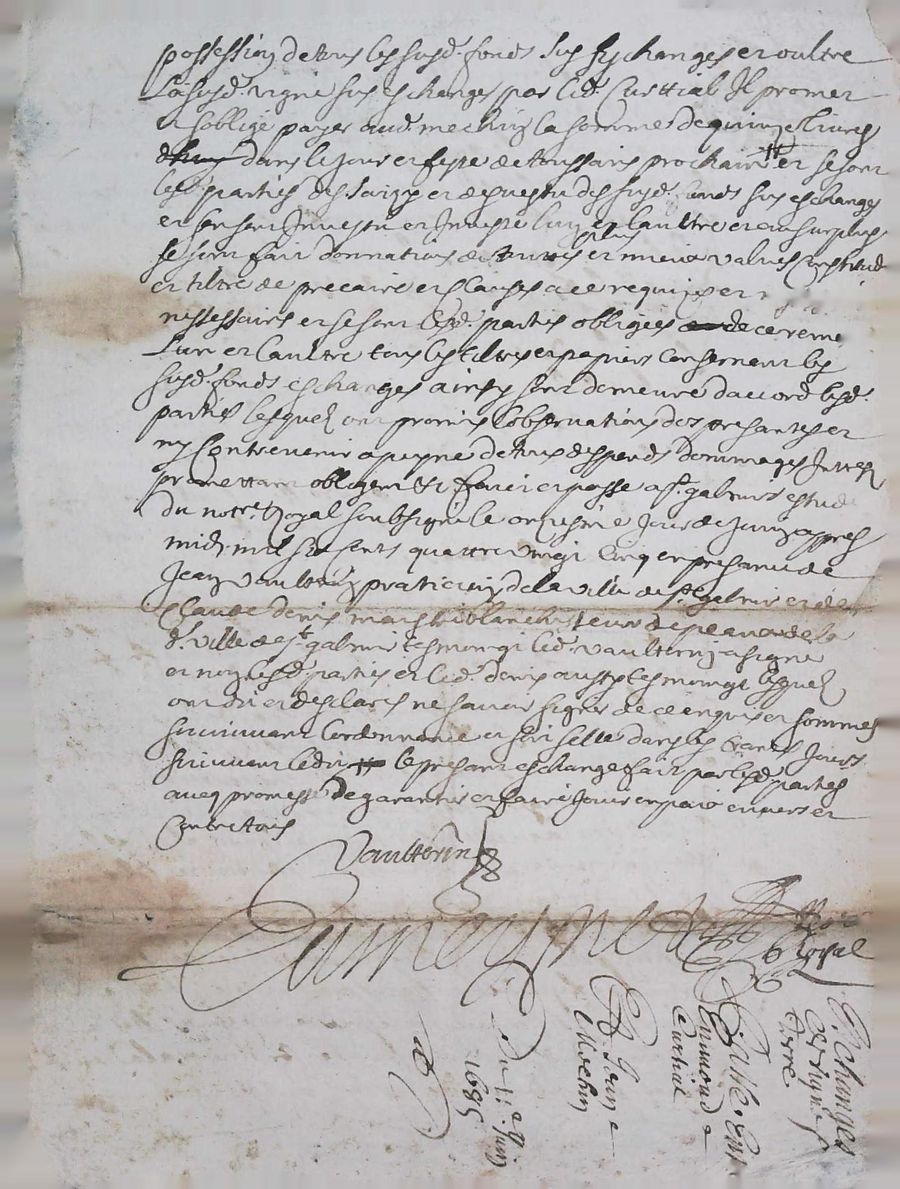 possession de tous les susd. fonds sus eschanges et oultre
la susd. vigne sus eschanges par led. Curttial Il promet
et soblige payer aud. mechin la somme de quinze livres
dans le jour et feste de toussains prochain et se sont
lesd. parties des saizy et devestu des susd. fonds sus eschanges
et sen sont Investu et Investe lun et laultre et au surplus
se sont fait donnation de touttes plus et mieux values Constitud
et tiltre de precaire et Clauses a ce requizes et
nessessaires et se sont lesd. parties obligees de ce reme
lun et laultre tous les tiltres et papiers Consernant les
susd. fonds eschanges ainsy sont demeure daccord lesd.
parties lesquel ont promis lobservation des presantes et
ny Contrevenir a peyne de tous despends dommages Interr
promettant obligent &c faict et passe a st galmier estude
du notre. Royal soubsigne le onziesme Jour de Juin appres
midi mil six cents quattre vingt Cinq en presance de
Jean Vaultherin praticien de la ville de st galmier et de
Claude denis maistre blanchisseur de peaux de la
d. ville de st galmier tesmoings led. vaulterin a signe
et non lesd. parties et led. denis aussy tesmoing lesquel
ont dit et desclares ne savoir signer de ce enquis et sommes
suivivant lordonnance et sera selle dans les trante Jours
suivivant ledit le presant eschange fait par lesd. parties
aveq promesse de garantir et faire Jouir en paix envers et
Contre tous
Vaultherin
Royal
Eschanges
et vigne
terre
Entre
Curtial
Et Jean
Mechin
Du 11e Juin
1685